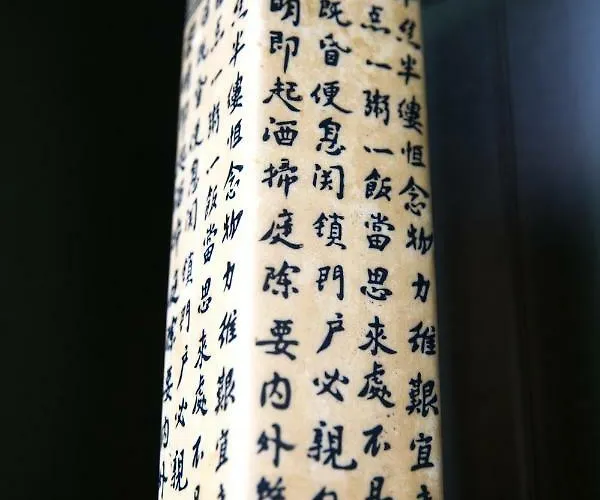 除要内外
昏便息関鎖門户必親
点一粥一飯當思来處不
半縷恒念物力維艱宜
明即起洒掃庭除要内外
既昏便息関鎖門户必親
点一粥一飯當思来處不
半縷恒念物力維艱宜